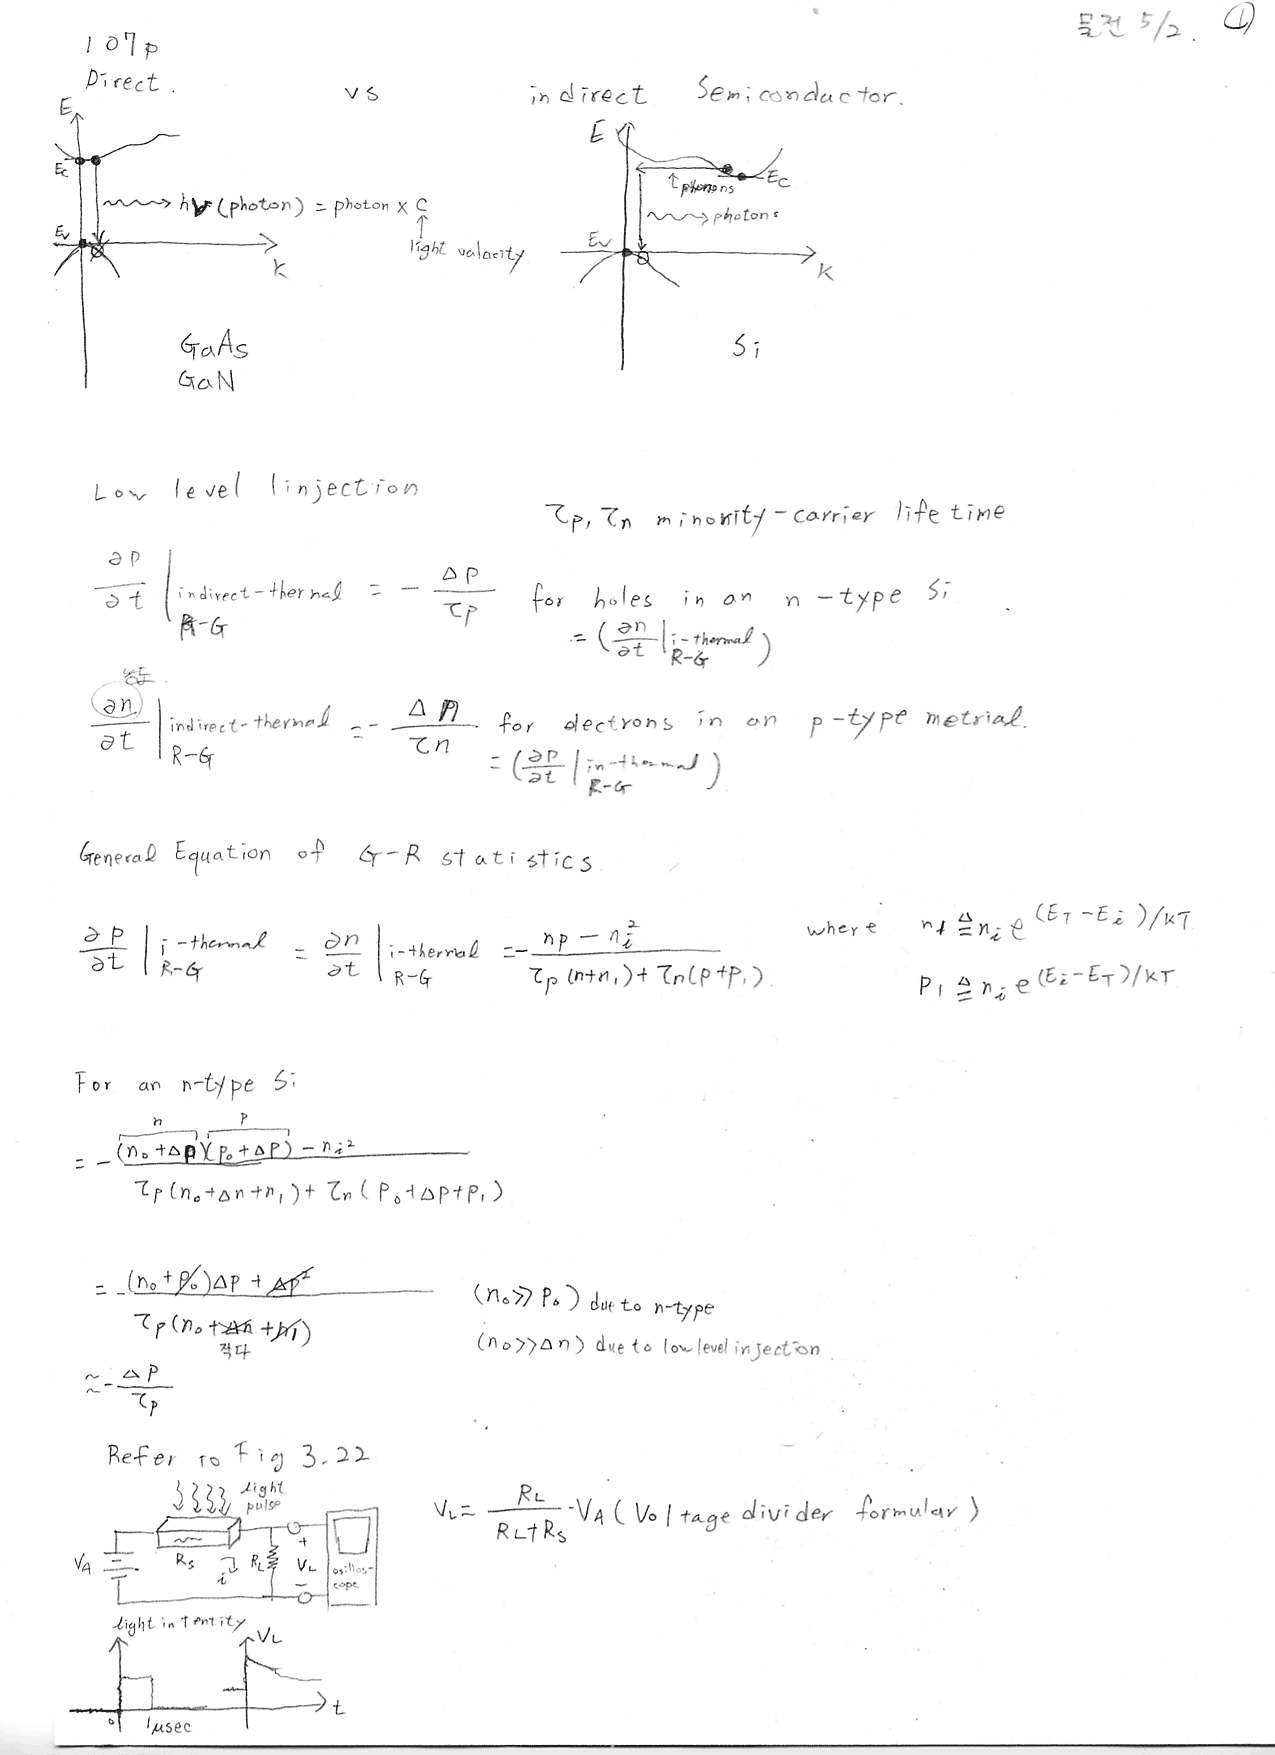 물전 5/2. ①
107p
Direct. vs indirect Semiconductor.
E E
Ec ↑phonons Ec
hν (photon) = photon × C photons
Ev ↑ Ev
light valocity
K K
GaAs Si
GaN
Low level linjection
τp, τn minority-carrier life time
∂p/∂t | indirect-thermal R-G = - Δp/τp for holes in an n-type Si
= (∂n/∂t | i-thermal R-G)
농도
∂n/∂t | indirect-thermal R-G = - Δn/τn for electrons in an p-type metrial.
= (∂p/∂t | in-thermal R-G)
General Equation of G-R statistics
∂p/∂t | i-thermal R-G = ∂n/∂t | i-thermal R-G = - (np - ni²) / (τp(n+n1) + τn(p+p1)) where n1 ≜ ni e^(ET-Ei)/kT
p1 ≜ ni e^(Ei-ET)/kT
For an n-type Si
n p
= - ((n0+Δn)(p0+Δp) - ni²) / (τp(n0+Δn+n1) + τn(p0+Δp+p1))
= - ((n0+p0)Δp + Δp²) / (τp(n0+Δn+n1)) (n0≫p0) due to n-type
적다 (n0>>Δn) due to low level injection
≈ - Δp/τp
Refer to Fig 3.22
light pulse
VL = RL/(RL+Rs) · VA (Voltage divider formular)
VA Rs i RL + VL - osillos-cope
light intentity VL
0 1μsec t